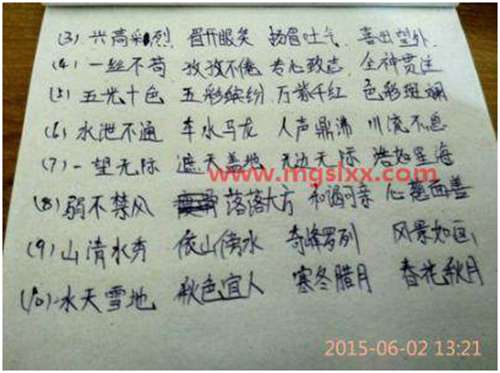 (3) 兴高彩烈 眉开眼笑 扬眉吐气 喜出望外
(4) 一丝不苟 孜孜不倦 专心致志 全神贯注
(5) 五光十色 五彩缤纷 万紫千红 色彩斑斓
(6) 水泄不通 车水马龙 人声鼎沸 川流不息
(7) 一望无际 遮天盖地 无边无际 浩如星海
www.mgslxx.com
(8) 弱不禁风 落落大方 和蔼可亲 心慈面善
(9) 山清水秀 依山傍水 奇峰罗列 风景如画
(10) 水天雪地 秋色宜人 寒冬腊月 春花秋月
2015-06-02 13:21